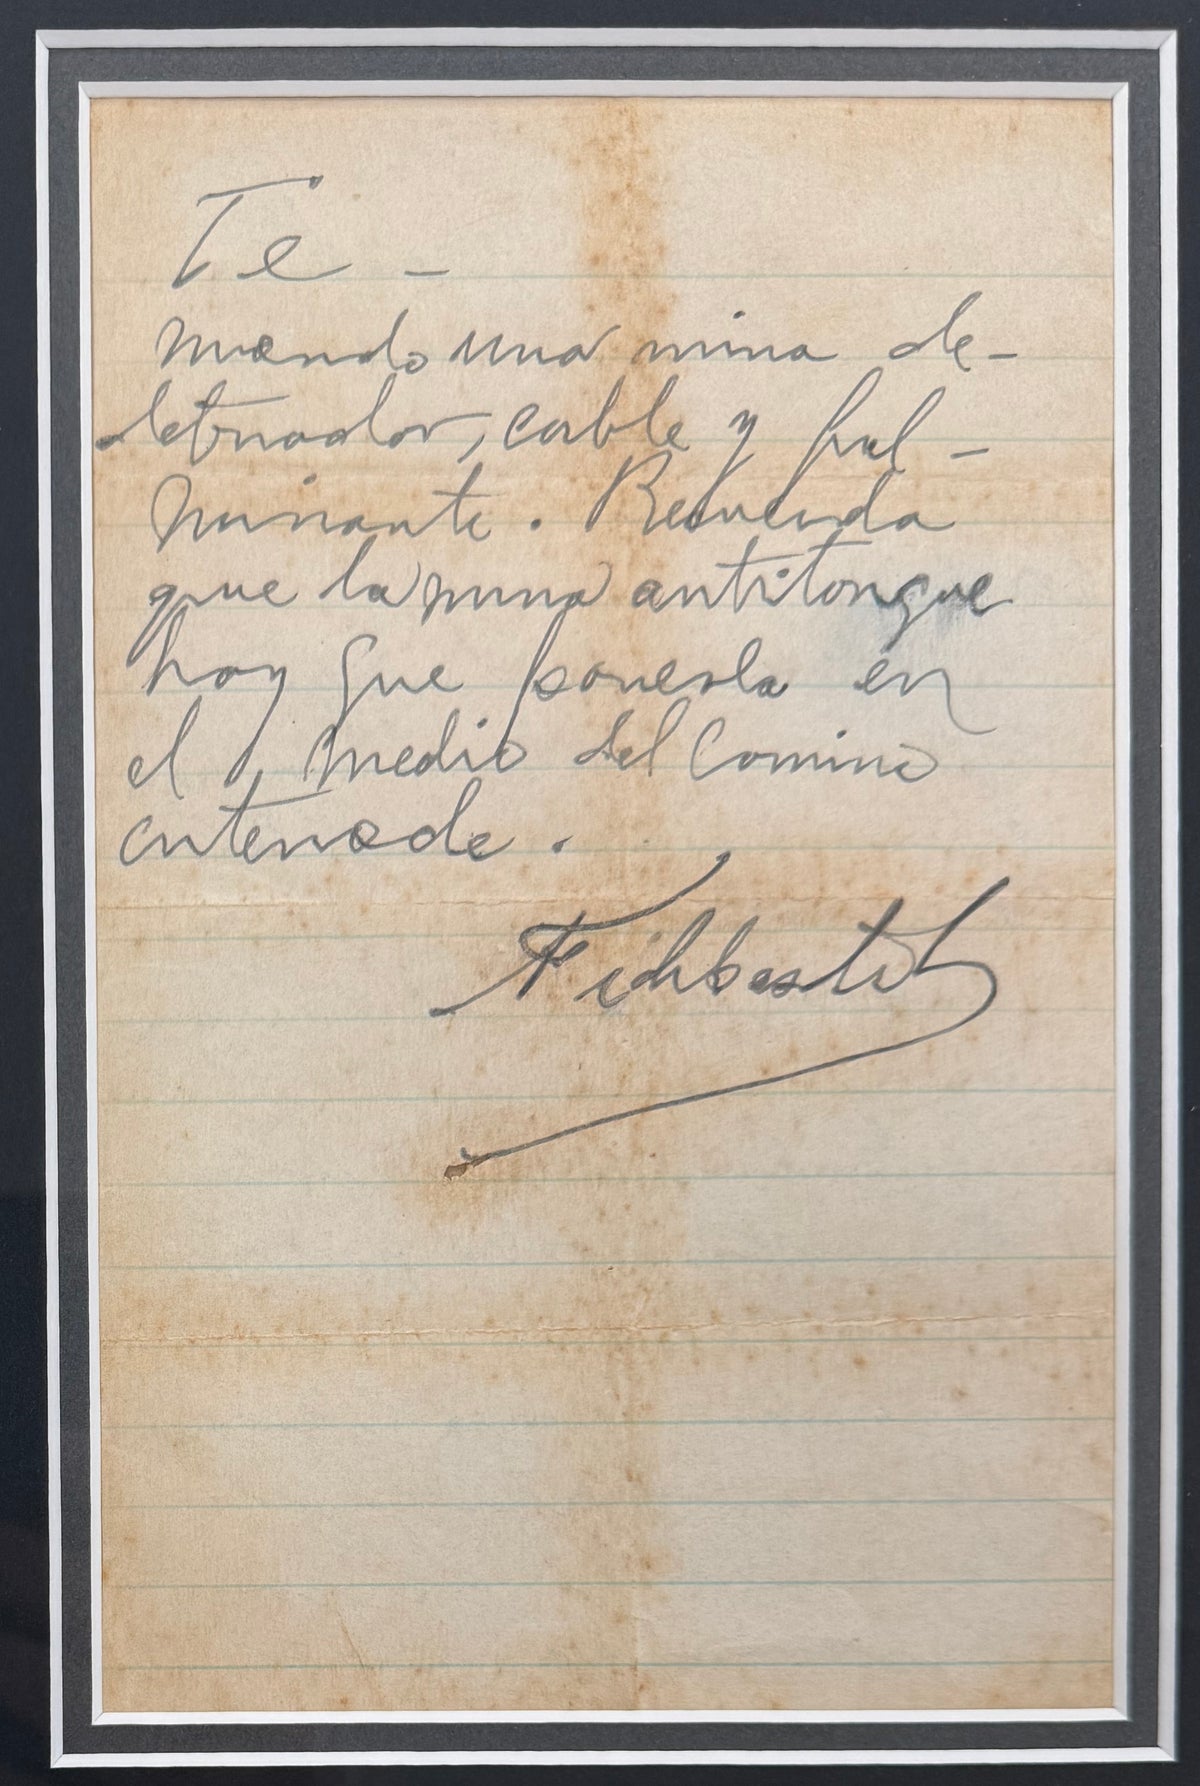 Te —
mando una mina de-
letonador, cable y ful-
minante. Recuerda
que la mina antitanque
hay que ponerla en
el medio del camino
enterrada.
Fidel Castro